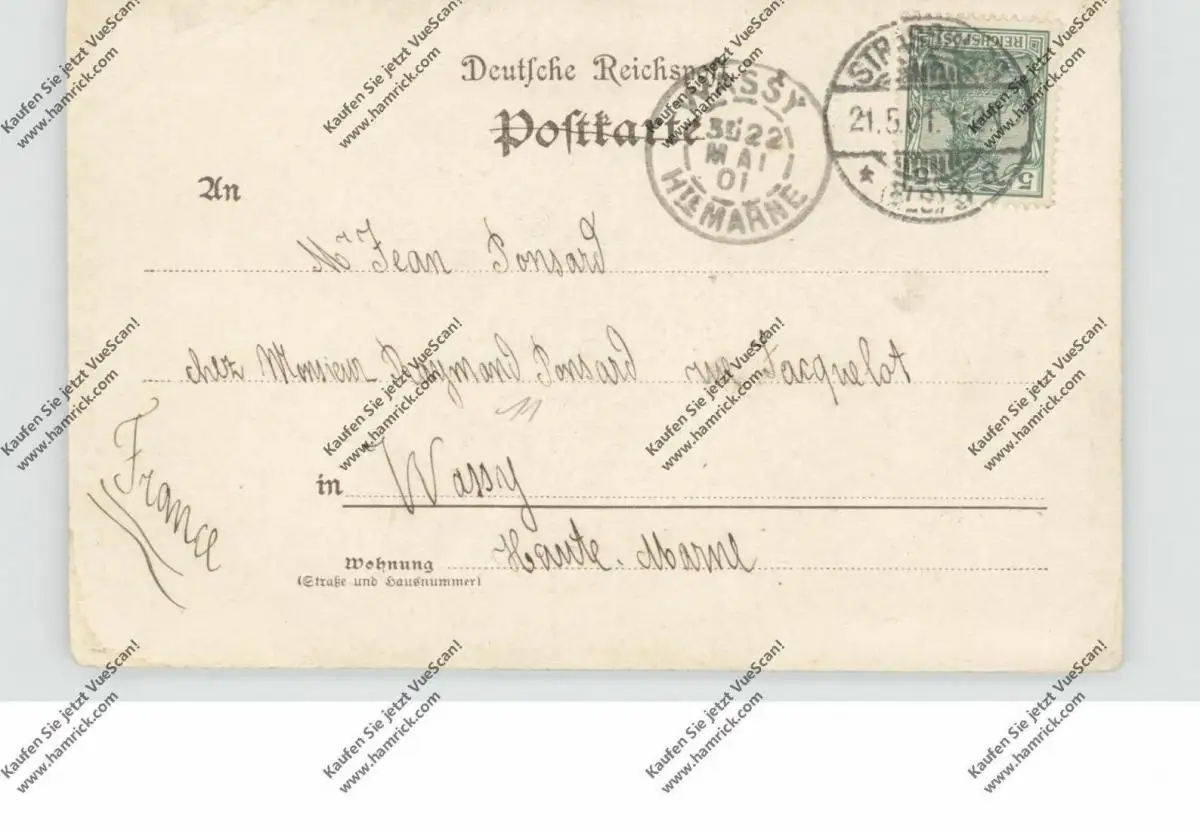 Deutsche Reichspost
Postkarte
WASSY
3E 22
MAI
01
HTE MARNE
STRASSBURG
21.5.01.
(ELS)
REICHSPOST
5
An
Mr Jean Ponsard
chez Monsieur Raymond Ponsard rue Jacquelot
in Wassy
France
Wohnung Haute-Marne
(Straße und Hausnummer)
Kaufen Sie jetzt VueScan!
www.hamrick.com